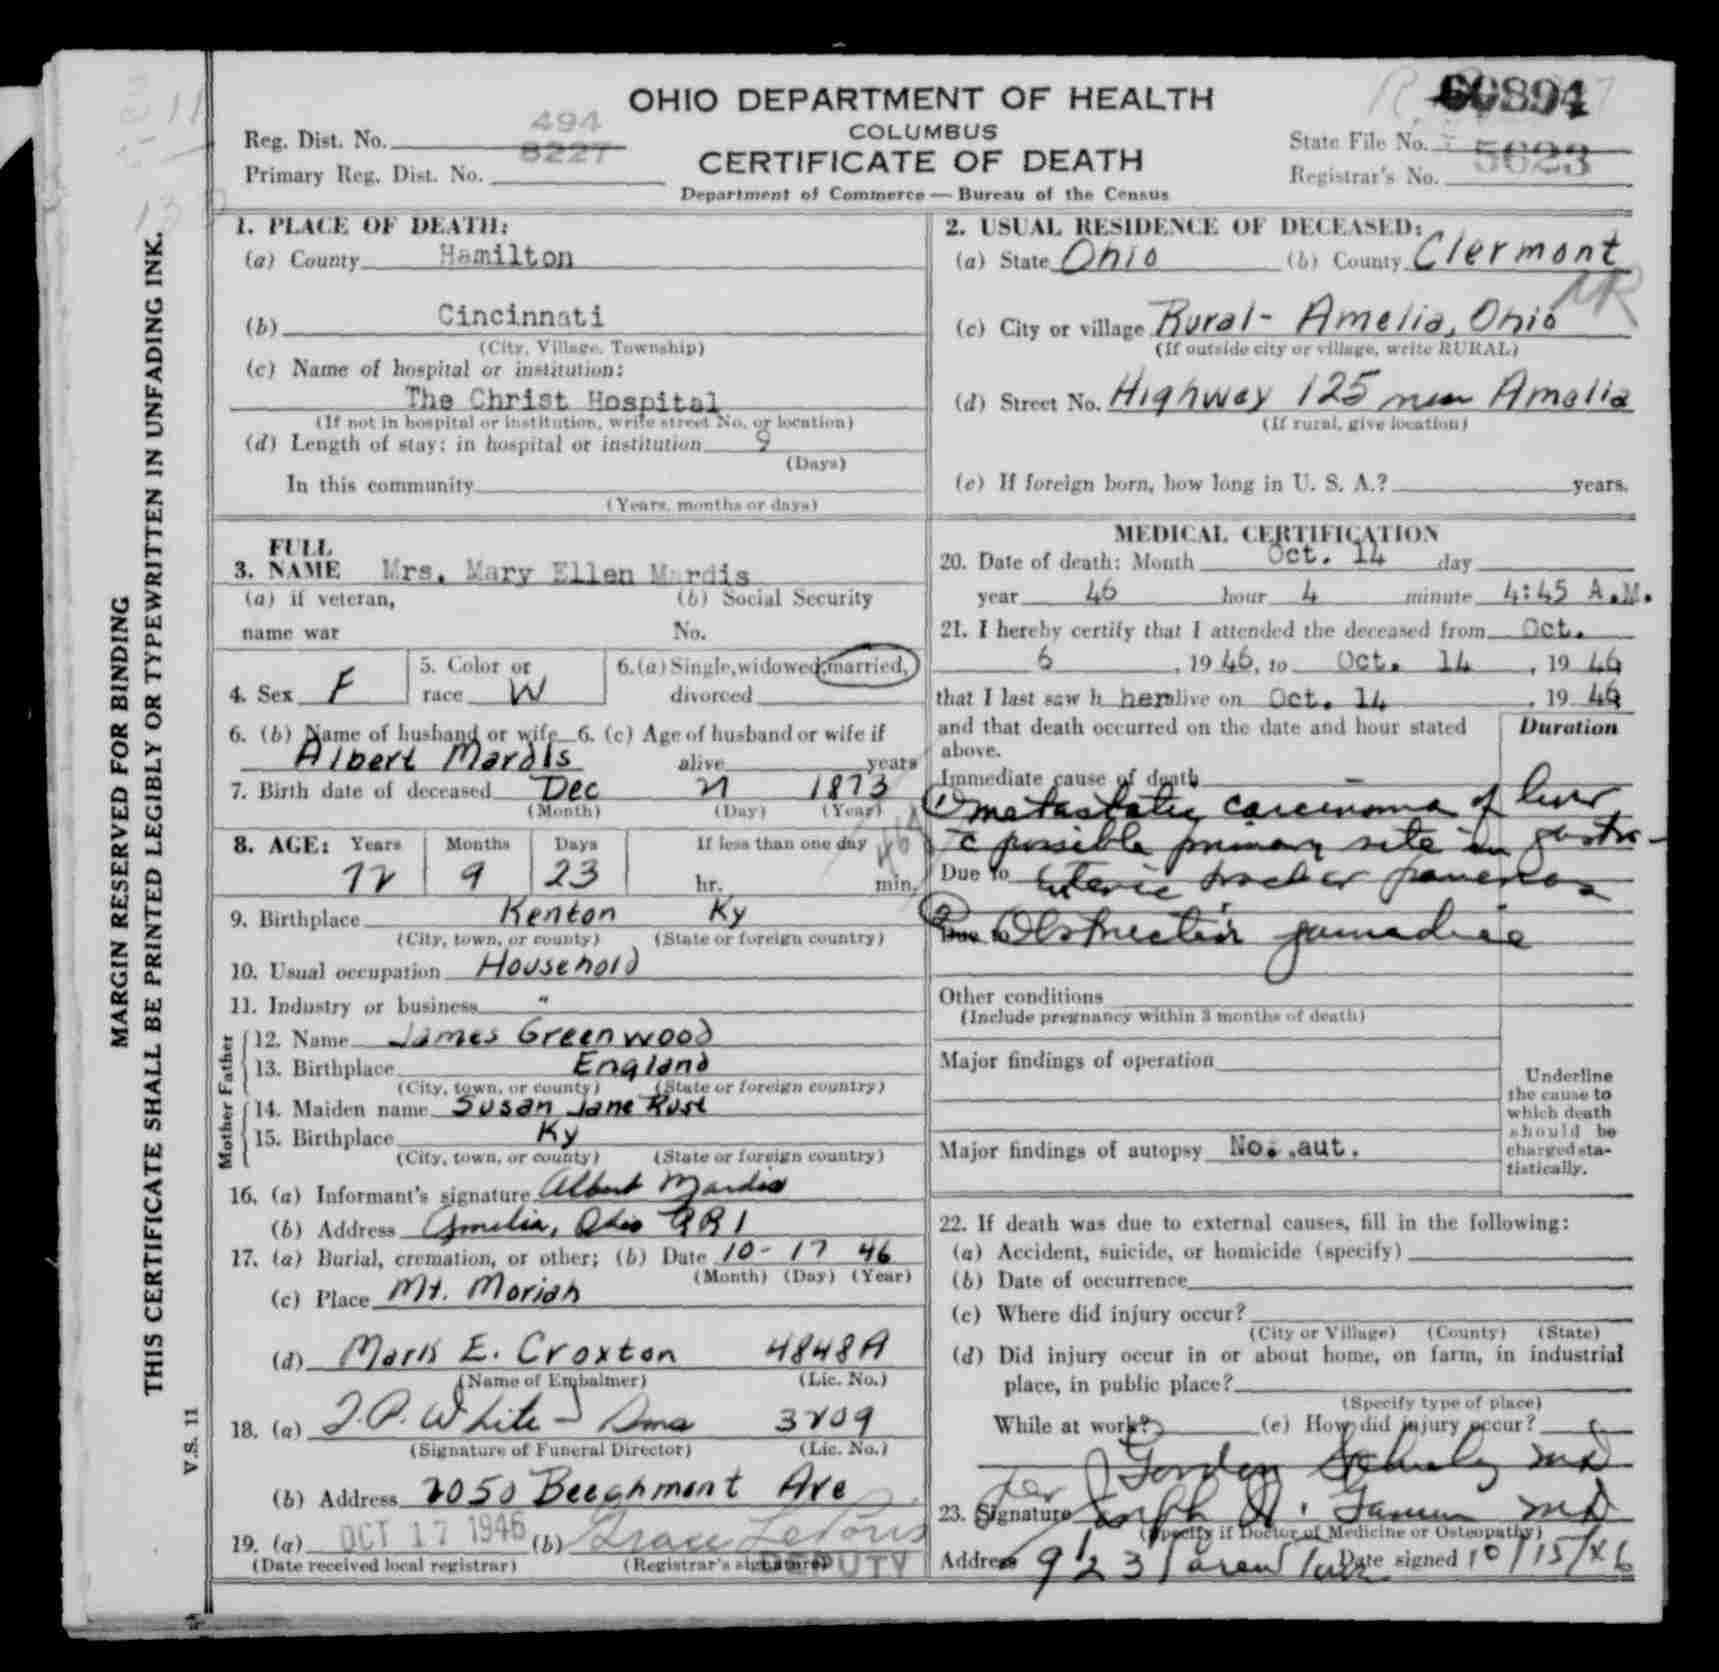 OHIO DEPARTMENT OF HEALTH
COLUMBUS
CERTIFICATE OF DEATH
Department of Commerce — Bureau of the Census
Reg. Dist. No. 494
8227
Primary Reg. Dist. No.
60894
State File No.
Registrar's No. 5623
MARGIN RESERVED FOR BINDING
THIS CERTIFICATE SHALL BE PRINTED LEGIBLY OR TYPEWRITTEN IN UNFADING INK.
V.S. 11
1. PLACE OF DEATH:
(a) County Hamilton
(b) Cincinnati
(City, Village, Township)
(c) Name of hospital or institution:
The Christ Hospital
(If not in hospital or institution, write street No. or location)
(d) Length of stay: in hospital or institution 9
(Days)
In this community
(Years, months or days)
2. USUAL RESIDENCE OF DECEASED:
(a) State Ohio (b) County Clermont
NR
(c) City or village Rural- Amelia, Ohio
(If outside city or village, write RURAL)
(d) Street No. Highway 125 near Amelia
(If rural, give location)
(e) If foreign born, how long in U. S. A.? years.
3. FULL NAME Mrs. Mary Ellen Mardis
(a) if veteran, (b) Social Security
name war No.
4. Sex F 5. Color or race W 6. (a) Single, widowed, married, divorced
6. (b) Name of husband or wife 6. (c) Age of husband or wife if
Albert Mardis alive years
7. Birth date of deceased Dec 21 1873
(Month) (Day) (Year)
8. AGE: Years Months Days If less than one day
72 9 23 hr. min.
9. Birthplace Kenton Ky
(City, town, or county) (State or foreign country)
10. Usual occupation Household
11. Industry or business "
Father
12. Name James Greenwood
13. Birthplace England
(City, town, or county) (State or foreign country)
Mother
14. Maiden name Susan Jane Rust
15. Birthplace Ky
(City, town, or county) (State or foreign country)
16. (a) Informant's signature Albert Mardis
(b) Address Amelia, Ohio RR 1
17. (a) Burial, cremation, or other; (b) Date 10- 17 46
(Month) (Day) (Year)
(c) Place Mt. Moriah
(d) Mark E. Croxton 4848A
(Name of Embalmer) (Lic. No.)
18. (a) T.P. White - Sons 3209
(Signature of Funeral Director) (Lic. No.)
(b) Address 2050 Beechmont Ave
19. (a) OCT 17 1946 (b) Grace
(Date received local registrar) (Registrar's signature) DEPUTY
MEDICAL CERTIFICATION
20. Date of death: Month Oct. 14 day
year 46 hour 4 minute 4:45 A.M.
21. I hereby certify that I attended the deceased from Oct.
6, 1946, to Oct. 14, 1946
that I last saw h her alive on Oct. 14, 1946
and that death occurred on the date and hour stated above.
Duration
Immediate cause of death
① metastatic carcinoma of liver
c̄ possible primary site in gastro-
Due to enteric tract or pancreas
② Due to Obstructive jaundice
Other conditions
(Include pregnancy within 3 months of death)
Major findings of operation
Major findings of autopsy No. aut.
Underline the cause to which death should be charged statistically.
22. If death was due to external causes, fill in the following:
(a) Accident, suicide, or homicide (specify)
(b) Date of occurrence
(c) Where did injury occur?
(City or Village) (County) (State)
(d) Did injury occur in or about home, on farm, in industrial
place, in public place?
(Specify type of place)
While at work? (e) How did injury occur?
per Gordon MD
23. Signature Joseph MD
(Specify if Doctor of Medicine or Osteopathy)
Address 923 Date signed 10/15/46